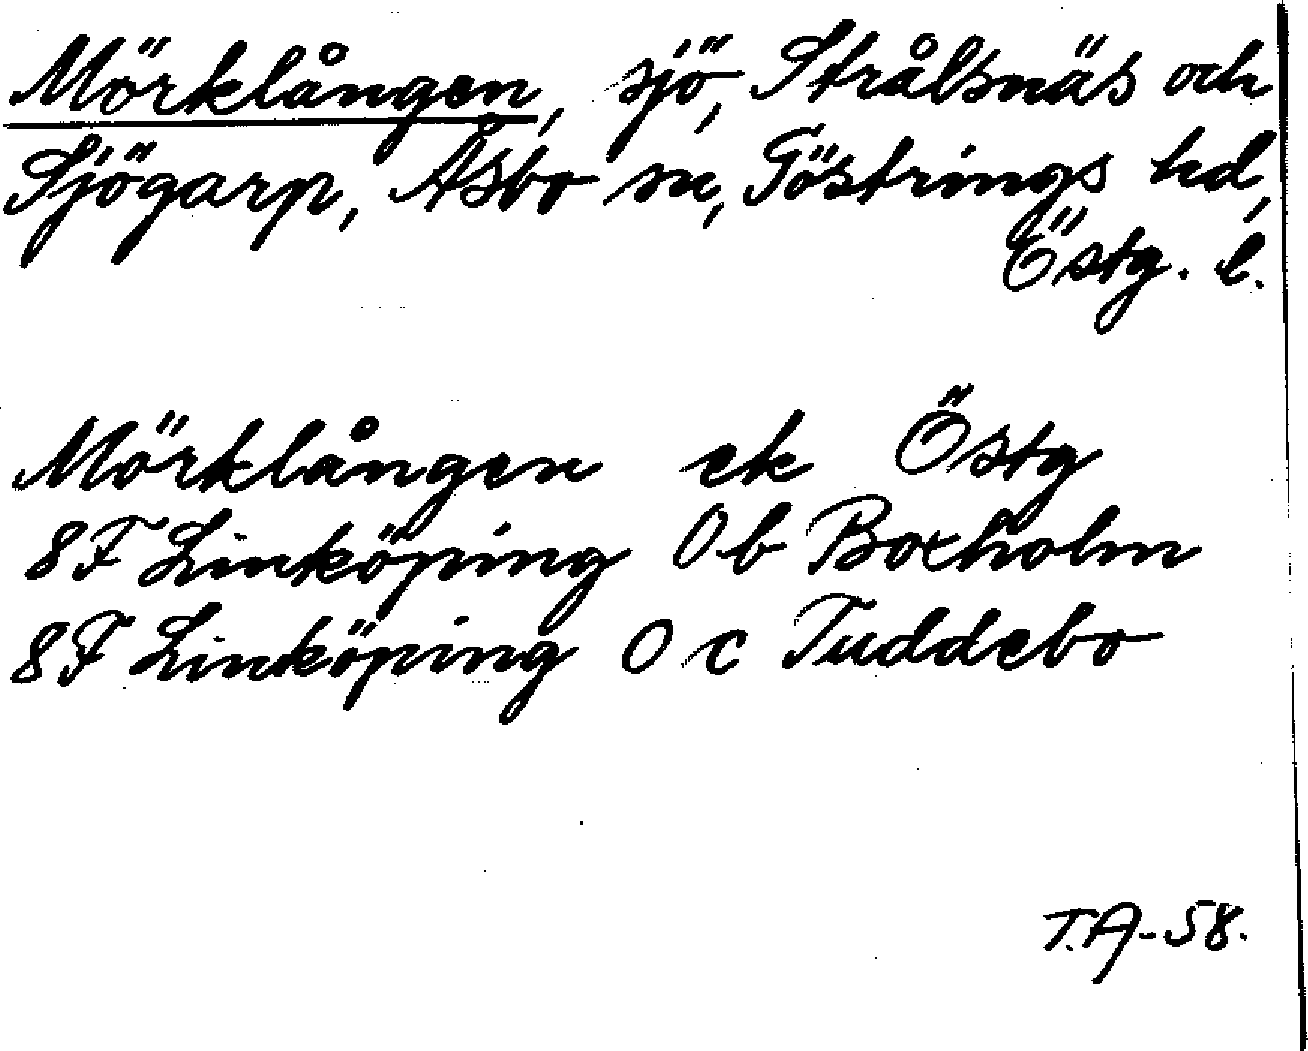 Mörklången, sjö, Strålsnäs och
Sjögarp, Åsbo sn, Göstrings hd,
Östg. l.
Mörklången ek Östg
8F Linköping 0b Boxholm
8F Linköping 0c Tuddebo
T.A-58.